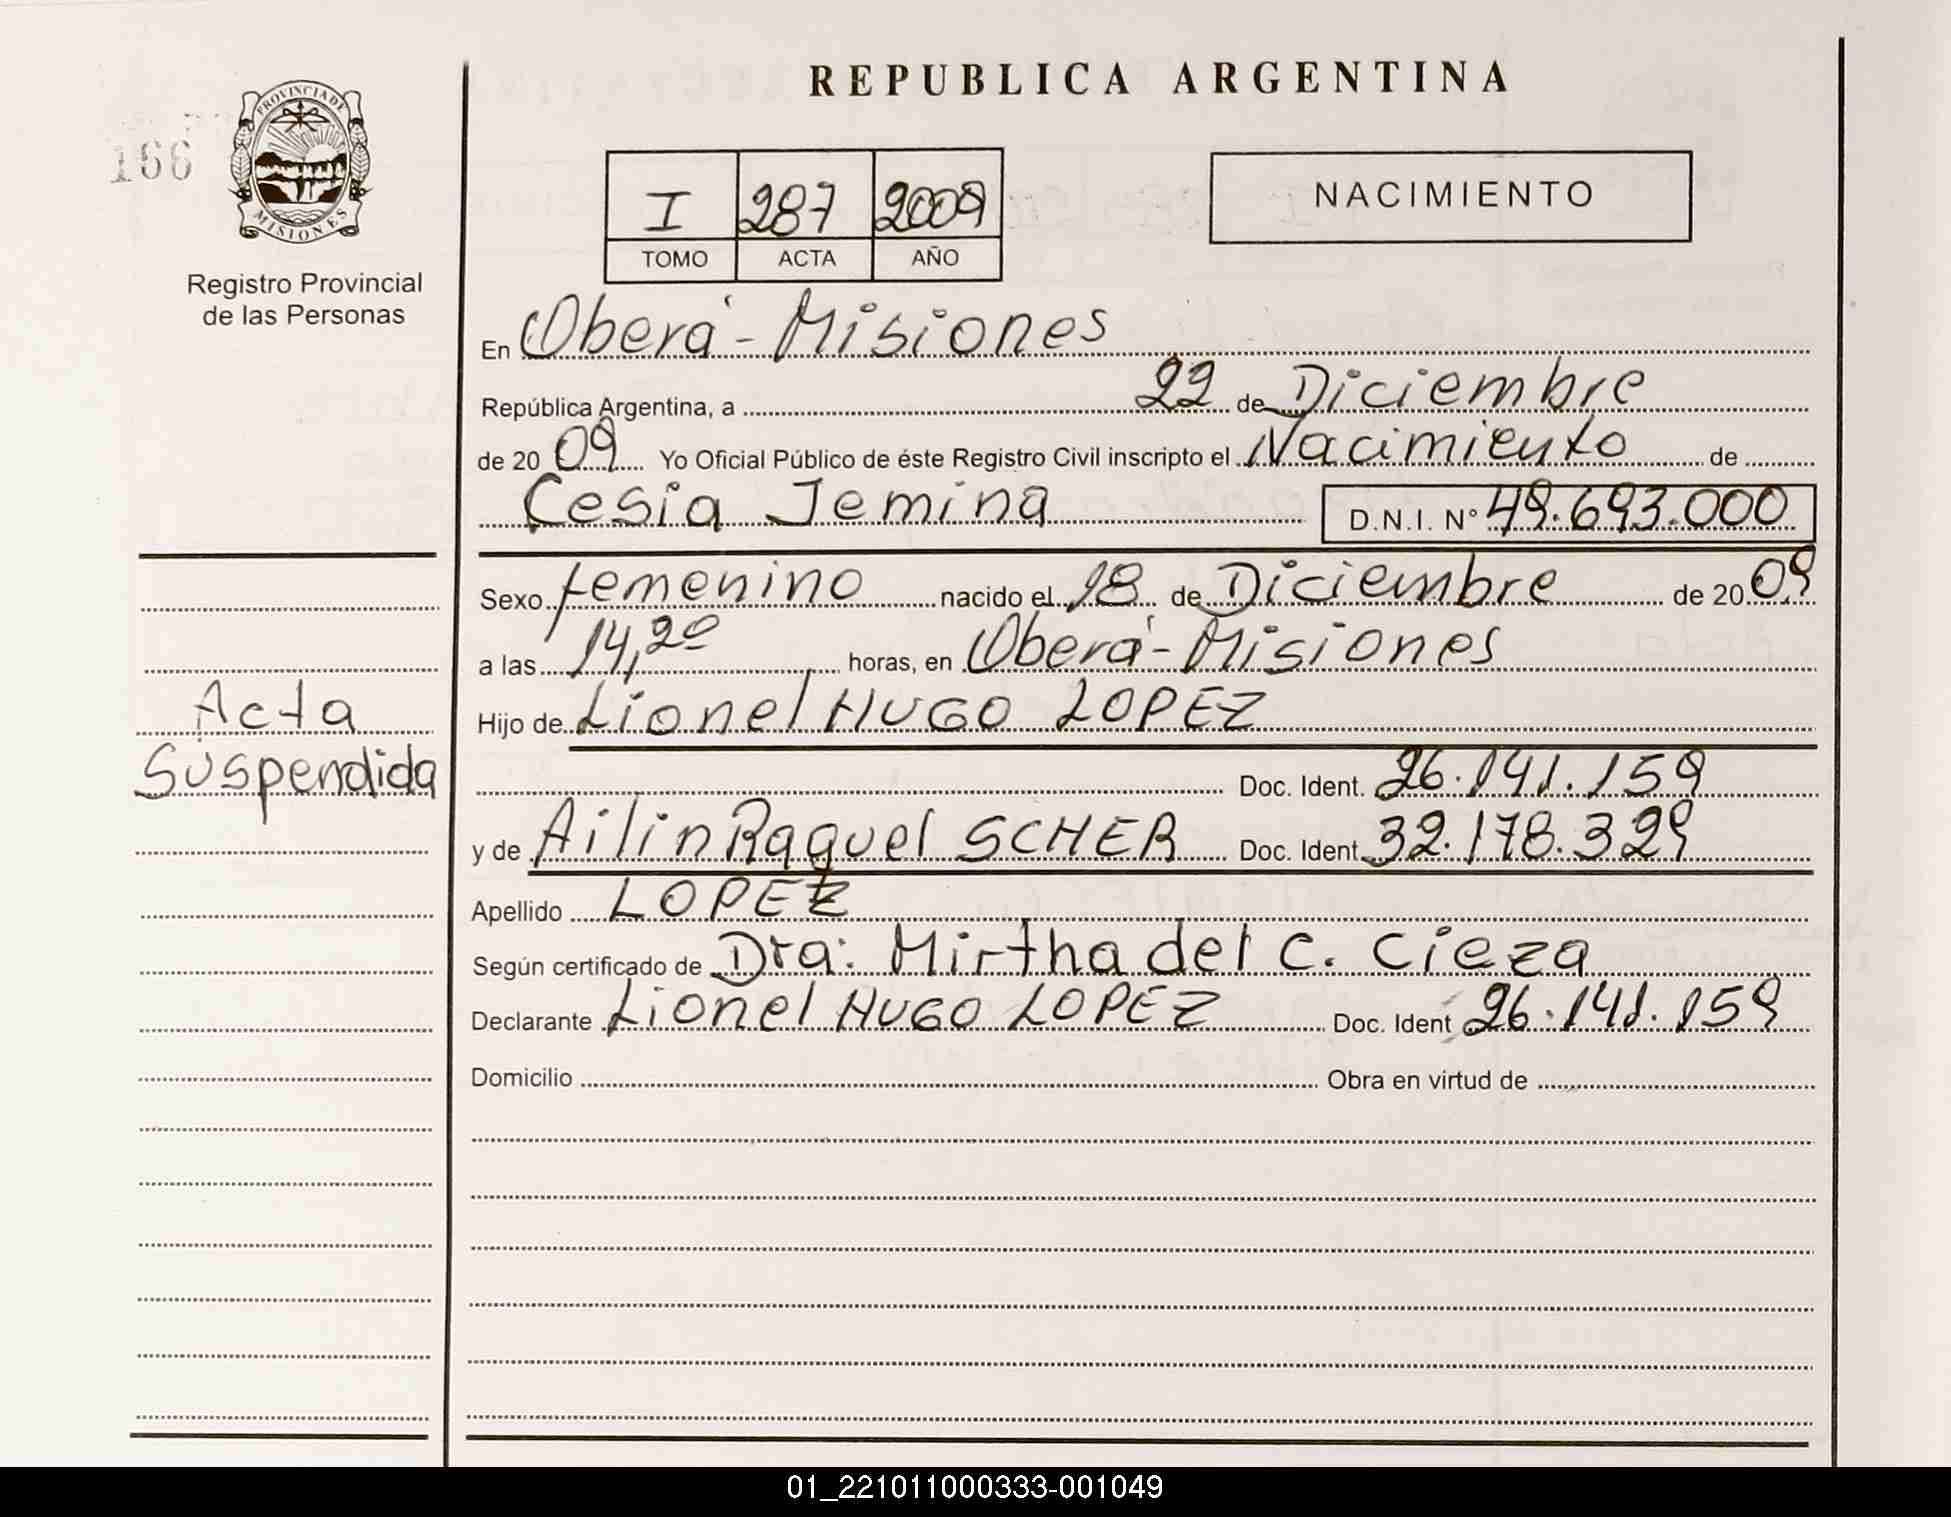 REPUBLICA ARGENTINA
166
PROVINCIA DE
MISIONES
Registro Provincial
de las Personas
I 287 2009
TOMO ACTA AÑO
NACIMIENTO
En Oberá - Misiones
República Argentina, a 22 de Diciembre
de 20 09 Yo Oficial Público de éste Registro Civil inscripto el Nacimiento de
Cesia Jemina D.N.I. N° 49.693.000
Sexo femenino nacido el 18 de Diciembre de 20 09
a las 14,20 horas, en Oberá - Misiones
Hijo de Lionel HUGO LOPEZ
Doc. Ident. 26.141.159
y de Ailin Raquel SCHER Doc. Ident. 32.178.329
Apellido LOPEZ
Según certificado de Dra: Mirtha del C. Cieza
Declarante Lionel HUGO LOPEZ Doc. Ident 26.141.159
Domicilio Obra en virtud de
Acta
Suspendida
01_221011000333-001049